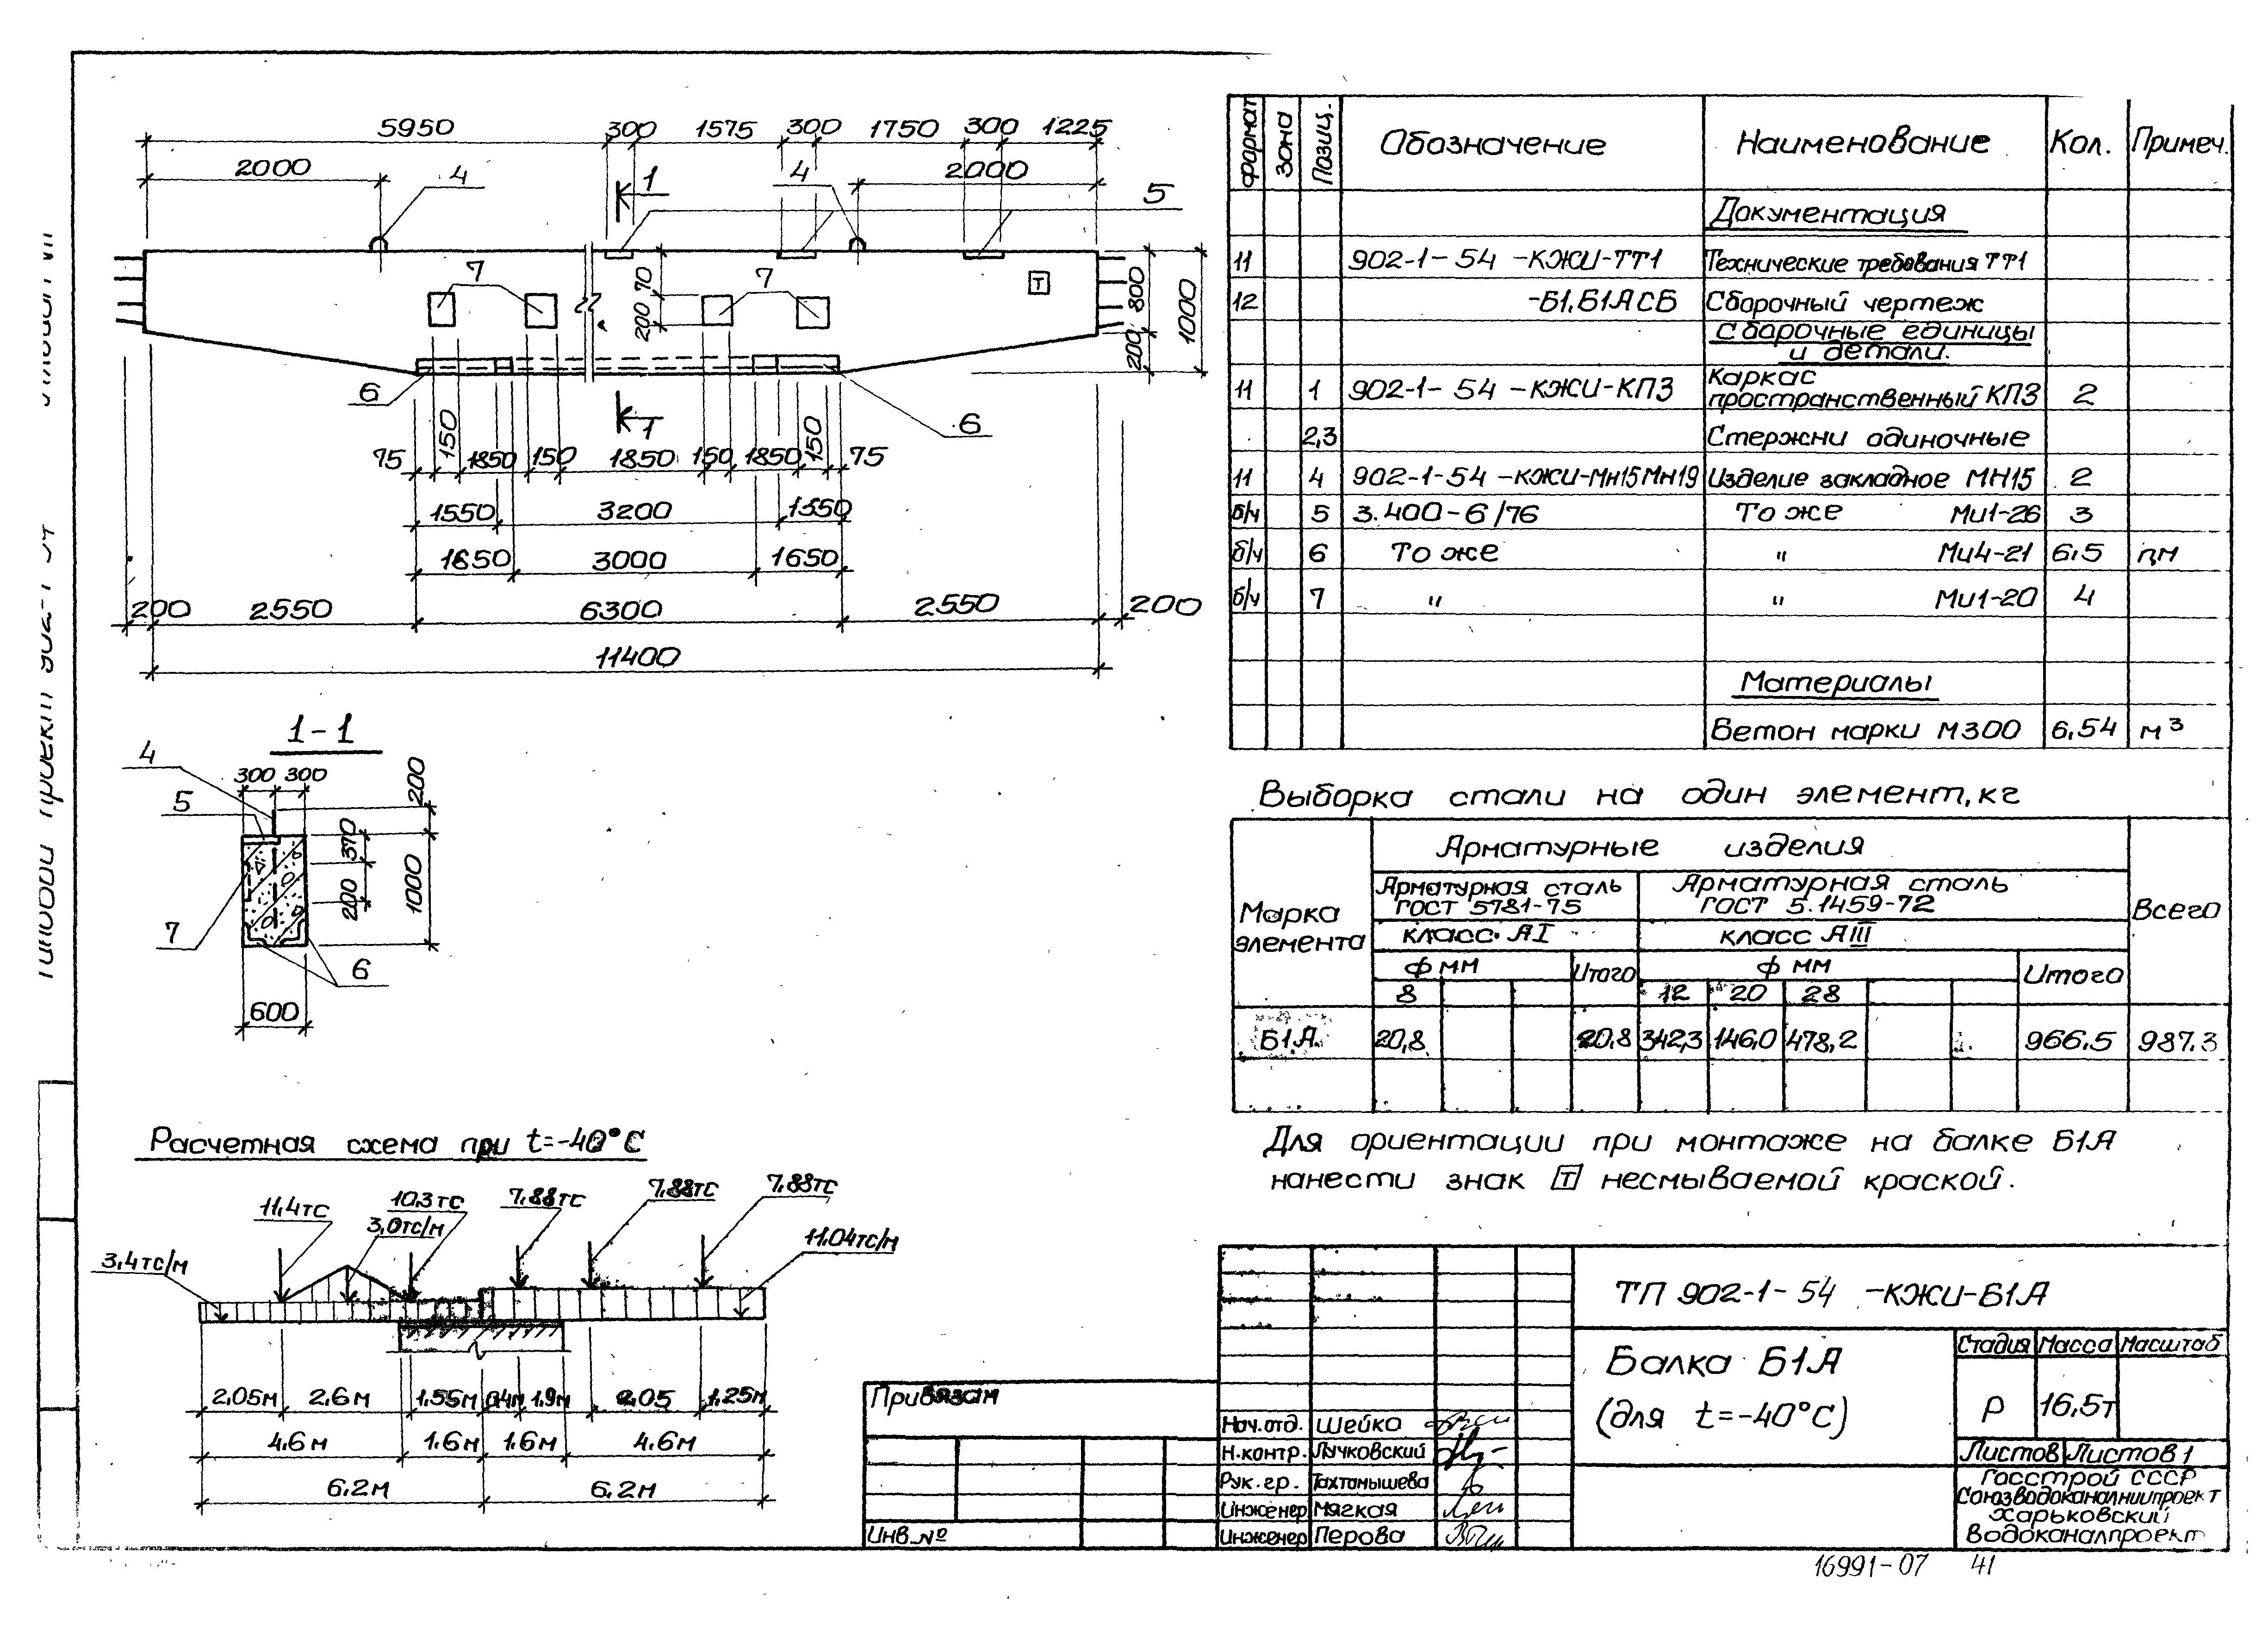 5950 300 1575 300 1750 300 1225
2000 4 1 4 2000 5
7 7 Т
70 200 800 200 1000
6 1 6
75 150 1850 150 1850 150 1850 150 75
1550 3200 1550
1650 3000 1650
200 2550 6300 2550 200
11400
1-1
4 300 300 200
5 370 1000
200
7 6
600
Расчетная схема при t=-40°C
11,4тс 10,3тс 7,88тс 7,88тс 7,88тс
3,4тс/м 3,0тс/м 11,04тс/м
2,05м 2,6м 1,55м 0,4м 1,9м 2,05 1,25м
4,6м 1,6м 1,6м 4,6м
6,2м 6,2м
формат зона Позиц. Обозначение Наименование Кол. Примеч.
Документация
11 902-1-54 -КЖИ-ТТ1 Технические требования ТТ1
12 -Б1,Б1АСБ Сборочный чертеж
Сборочные единицы
и детали.
11 1 902-1-54 -КЖИ-КП3 Каркас
пространственный КП3 2
2,3 Стержни одиночные
11 4 902-1-54 -КЖИ-Мн15Мн19 Изделие закладное МН15 2
б/ч 5 3.400-6/76 То же Ми1-26 3
б/ч 6 То же " Ми4-21 6,5 п,м
б/ч 7 " " Ми1-20 4
Материалы
Бетон марки М300 6,54 м³
Выборка стали на один элемент, кг
Марка элемента Арматурные изделия Всего
Арматурная сталь ГОСТ 5781-75 Арматурная сталь ГОСТ 5.1459-72
класс АI класс АIII
ф мм Итого ф мм Итого
8 12 20 28
Б1А 20,8 20,8 342,3 146,0 478,2 966.5 987.3
Для ориентации при монтаже на балке Б1А
нанести знак Т несмываемой краской.
ТП 902-1-54 -КЖИ-Б1А
Балка Б1А
(для t=-40°C)
Стадия Масса Масштаб
Р 16,5т
Листов Листов 1
Госстрой СССР
Союзводоканалниипроект
Харьковский
Водоканалпроект
Привязан
Инв. №
Нач.отд. Шейко
Н.контр. Лучковский
Рук.гр. Тахтамышева
Инженер Мягкая
Инженер Перова
16991-07 41